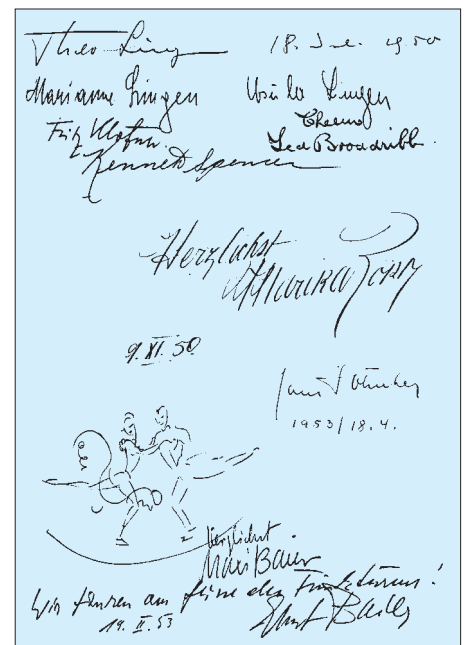 Theo Ling 18. 1950
Marianne Lingen Ursula Lingen
Fritz
Ted Broadribb.
Kenneth Spencer
Herzlichst
Marika Rökk
9. XI. 50
1953/18.4.
Herzlichst
Maxi Baier
Wir tanzen am des Funkturms!
19. II. 53 Ernst Baier